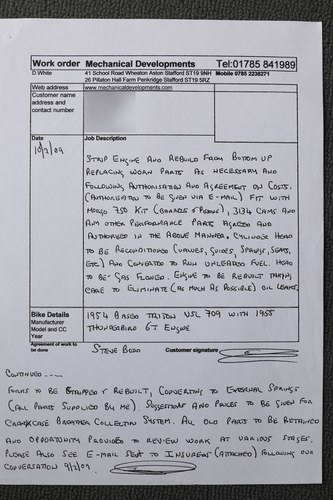 Work order Mechanical Developments Tel:01785 841989
D.White 41 School Road Wheaton Aston Stafford ST19 9NH Mobile 0785 2238271
26 Pillaton Hall Farm Penkridge Stafford ST19 5RZ
Web address www.mechanicaldevelopments.com
Customer name
address and
contact number
Date Job Description
10/2/09
STRIP ENGINE AND REBUILD FROM BOTTOM UP
REPLACING WORN PARTS AS NECESSARY AND
FOLLOWING AUTHORISATION AND AGREEMENT ON COSTS.
(AUTHORISATION TO BE GIVEN VIA E-MAIL) FIT WITH
MORGO 750 KIT (BARRELS & PISTONS), 3134 CAMS AND
ANY OTHER PERFORMANCE PARTS AGREED AND
AUTHORISED IN THE ABOVE MANNER. CYLINDER HEAD
TO BE RECONDITIONED (VALVES, GUIDES, SPRINGS, SEATS,
ETC) AND CONVERTED TO RUN UNLEADED FUEL. HEAD
TO BE GAS FLOWED. ENGINE TO BE REBUILT TAKING
CARE TO ELIMINATE (AS MUCH AS POSSIBLE) OIL LEAKS.
Bike Details
Manufacturer
Model and CC
Year
1954 BASED TRITON VSL 709 WITH 1955
THUNDERBIRD 6T ENGINE
Agreement of work to
be done
STEVE Customer signature
CONTINUED ----
FORKS TO BE STRIPPED & REBUILT, CONVERTING TO EXTERNAL SPRINGS
(ALL PARTS SUPPLIED BY ME) SUGGESTIONS AND PRICES TO BE GIVEN FOR
CRANKCASE BREATHER COLLECTION SYSTEM. ALL OLD PARTS TO BE RETAINED
AND OPPORTUNITY PROVIDED TO REVIEW WORK AT VARIOUS STAGES.
PLEASE ALSO SEE E-MAIL SENT TO INSURERS (ATTACHED) FOLLOWING OUR
CONVERSATION 9/2/09.